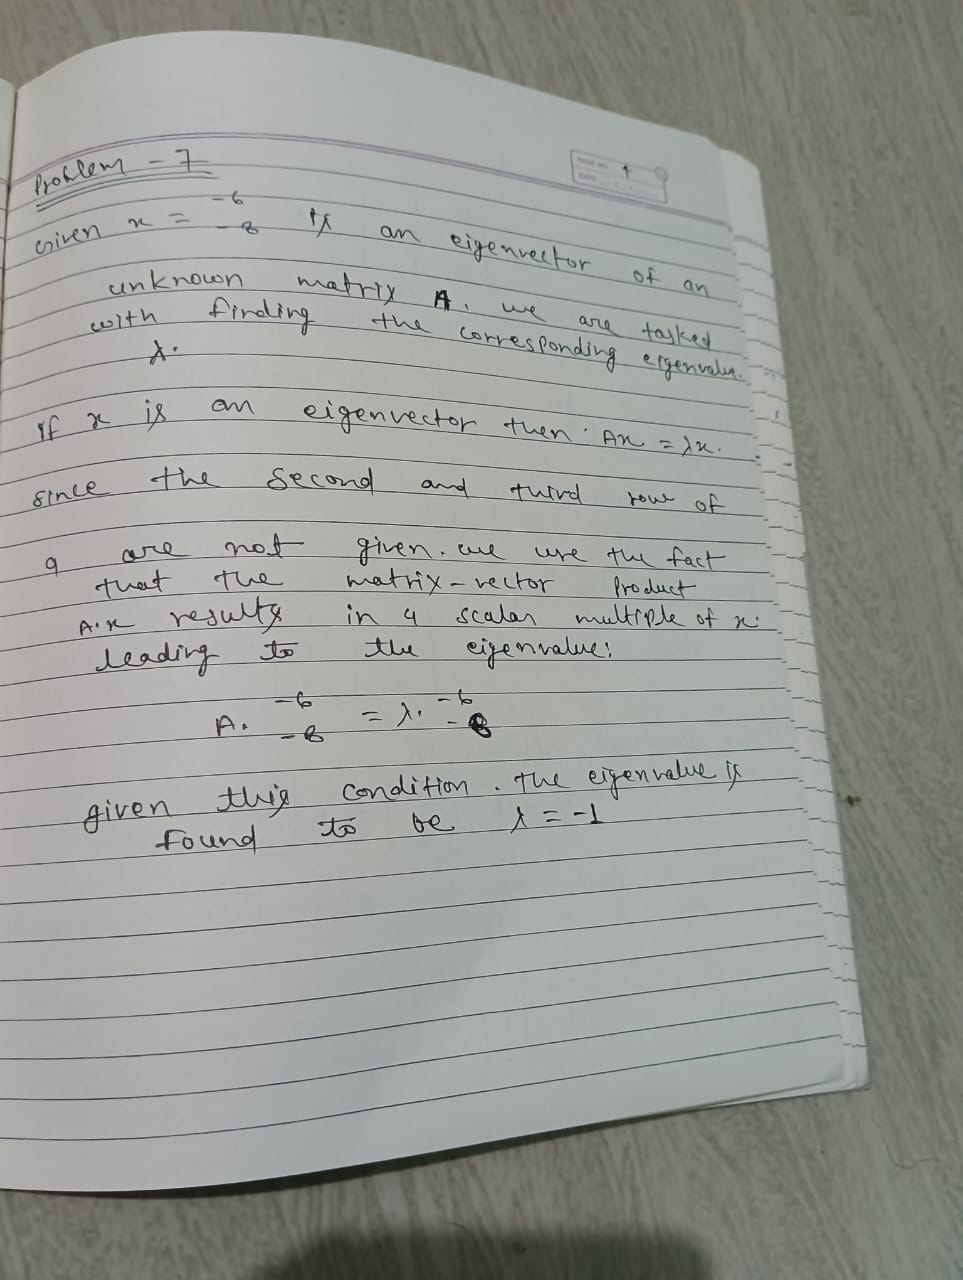 PAGE NO. 1
DATE
Problem - 7
-6
Given x = -8 is an eigenvector of an
unknown matrix A. we are tasked
with finding the corresponding eigenvalue.
λ.
if x is an eigenvector then Ax = λx.
since the second and third row of
a are not given. we use the fact
that the matrix-vector product
A.x results in a scalar multiple of x.
leading to the eigenvalue:
-6 -6
A. -8 = λ. -8
given this condition. The eigenvalue is
found to be λ = -1